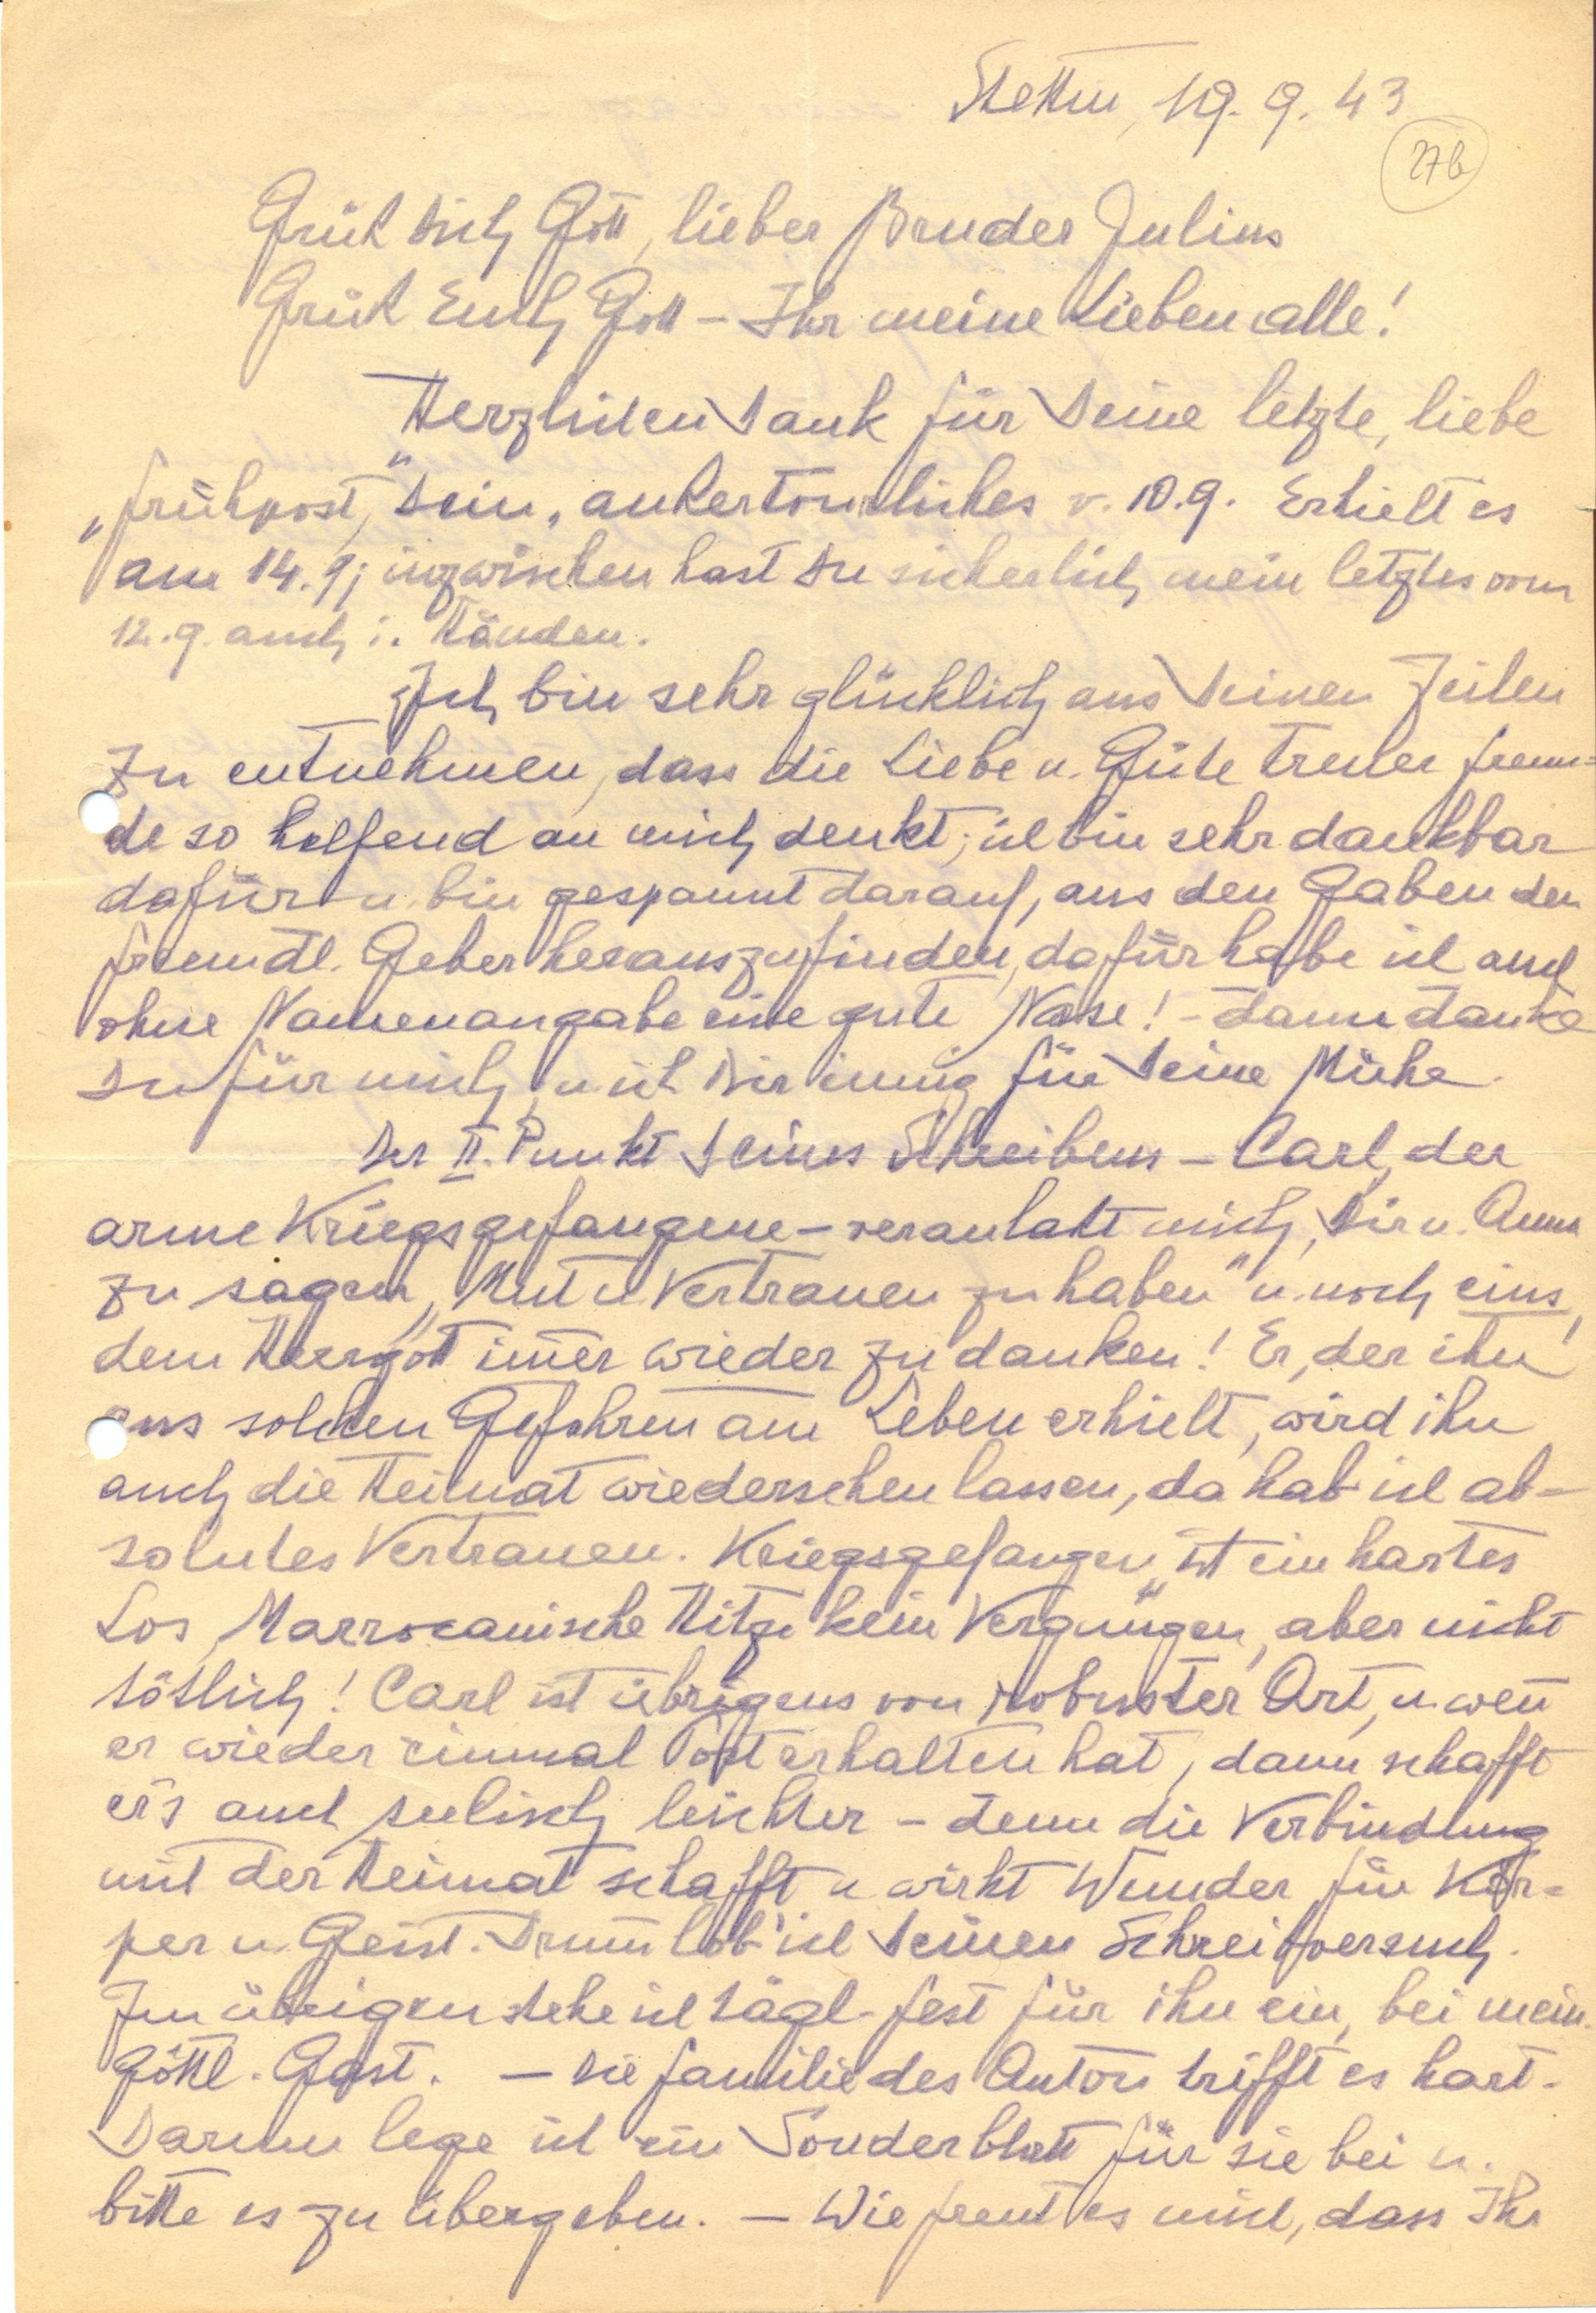 Stettin, 19. 9. 43
27b
Grüß Dich Gott, lieber Bruder Julius
Grüß Euch Gott – Ihr meine Lieben alle!
Herzlichen Dank für Deine letzte, liebe
„Frühpost," Dein, außertourliches v. 10.9. Erhielt es
am 14.9; inzwischen hast Du sicherlich mein letztes vom
12.9. auch i. Händen.
Ich bin sehr glücklich aus Deinen Zeilen
zu entnehmen, dass die Liebe u. Güte treuer Freun=
de so helfend an mich denkt; ich bin sehr dankbar
dafür u. bin gespannt darauf, aus den Gaben den
freundl. Geber herauszufinden, dafür habe ich auch
ohne Namenangabe eine gute Nase! – Dann danke
Du für mich u. ich Dir innig für Deine Mühe.
Der II. Punkt Deines Schreibens – Carl, der
arme Kriegsgefangene – veranlaßt mich, Dir u. Anna
zu sagen, „Mut u. Vertrauen zu haben" u. noch eins,
dem Herrgott im̄er wieder zu danken! Er, der ihn
aus solchen Gefahren am Leben erhielt, wird ihn
auch die Heimat wiedersehen lassen, da hab ich ab-
solutes Vertrauen. Kriegsgefangen" ist ein hartes
Los, Marrocanische Hitze kein Vergnügen, aber nicht
tötlich! Carl ist übrigens von robuster Art, u. wen̄
er wieder einmal Post erhalten hat, dann schafft
er's auch seelisch leichter – denn die Verbindung
mit der Heimat schafft u. wirkt Wunder für Kör=
per u. Geist. Drum lob' ich Deinen Schreibversuch.
Im übrigen stehe ich tägl. fest für ihn ein, bei mein.
Göttl. Gast. – Die Familie des Anton trifft es hart.
Darum lege ich ein Sonderblatt für sie bei u.
bitte es zu übergeben. – Wie freut es mich, dass Ihr